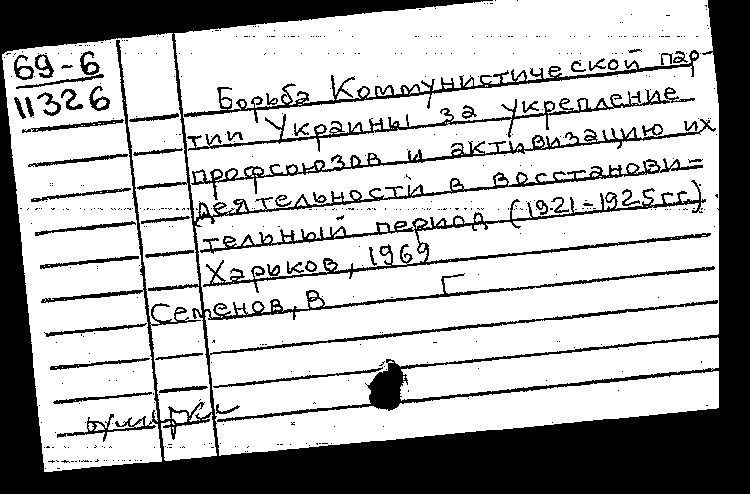 69-6
11326
Борьба Коммунистической пар-
тии Украины за укрепление
профсоюзов и активизацию их
деятельности в восстанови=
тельный период (1921-1925 гг.).
Харьков, 1969
Семенов, В Г